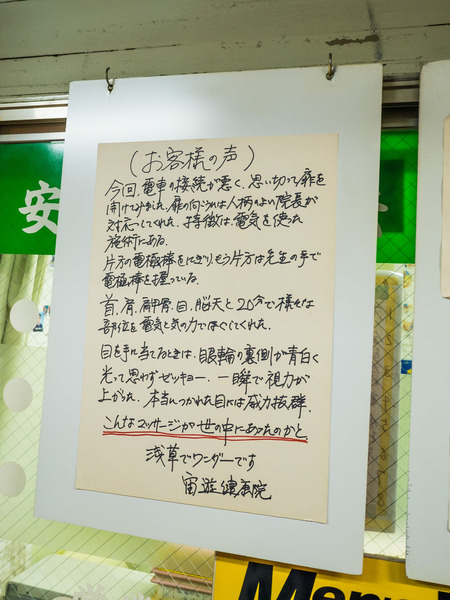 (お客様の声)
今回、電車の接続が悪く、思い切って扉を
開けてみました。扉の向こうには人柄のよい院長が
対応してくれた。特徴は、電気を使った
施術にある。
片方の電極棒をにぎり、もう片方は先生の手で
電極棒を握っている。
首、肩、肩甲骨、目、脳天と20分で様々な
部位を電気と気の力でほぐしてくれた。
目を手に当てるときは、眼輪の裏側が青白く
光って思わずゼッキョー。一瞬で視力が
上がった。本当につかれた目には威力抜群。
こんなマッサージが世の中にあったのかと
浅草でワンダーです
宙遊健康院
安
Menu